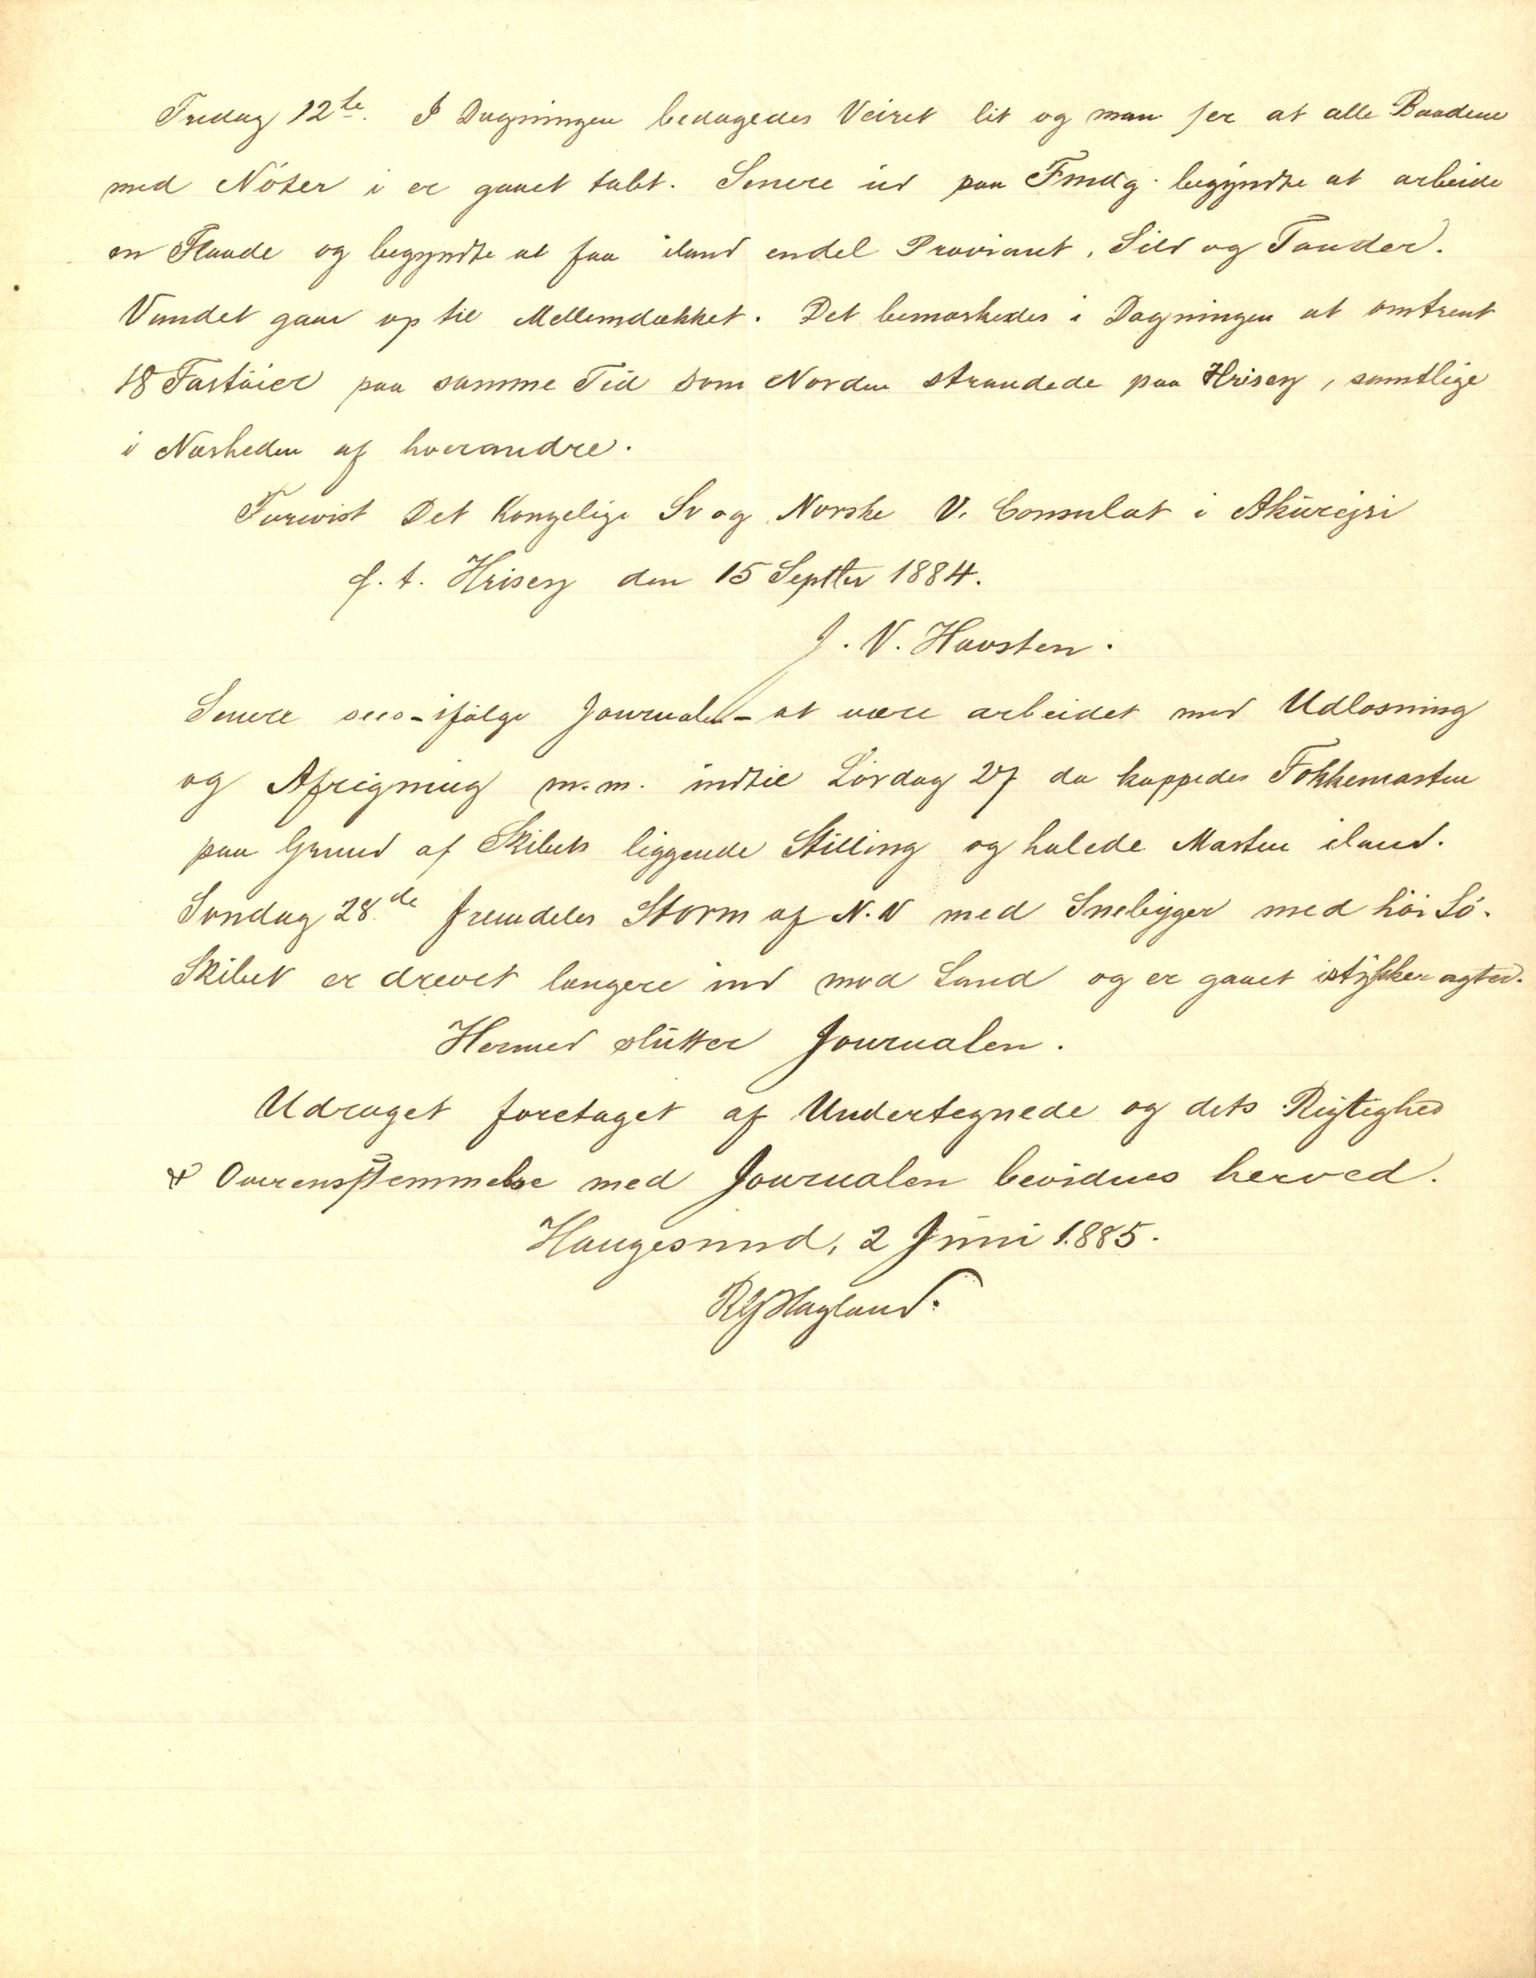 Fredag 12te. I Dagningen bedagedes Veiret lit og man ser at alle Baadene
med Nöter i er gaaet tabt. Senere ud paa Fmdg. begyndte at arbeide
en Flaade og begyndte at faa iland endel Proviant, Sild og Tønder.
Vandet gaar op til Mellemdækket. Det bemærkedes i Dagningen at omtrent
18 Fartöier paa samme Tid som Norden strandede paa Hrisey, samtlige
i Nærheden af hverandre.
Forevist Det Kongelige Sv og Norske V. Consulat i Akureyri
p. t. Hrisey den 15 Septbr 1884.
J. V. Havsten.
Senere sees - ifølge Journalen - at være arbeidet med Udlosning
og Afrigning m.m. indtil Lørdag 27 da kappedes Fokkemasten
paa Grund af Skibets liggende Stilling og halede Masten iland.
Søndag 28de fremdeles Storm af N.N med Snebyger med höi Sö.
Skibet er drevet længere ind mod Land og er gaaet istykker agter.
Hermed slutter Journalen.
Udraget foretaget af Undertegnede og dets Rigtighed
& Overensstemmelse med Journalen bevidnes herved.
Haugesund, 2 Juni 1885.
Hagland.